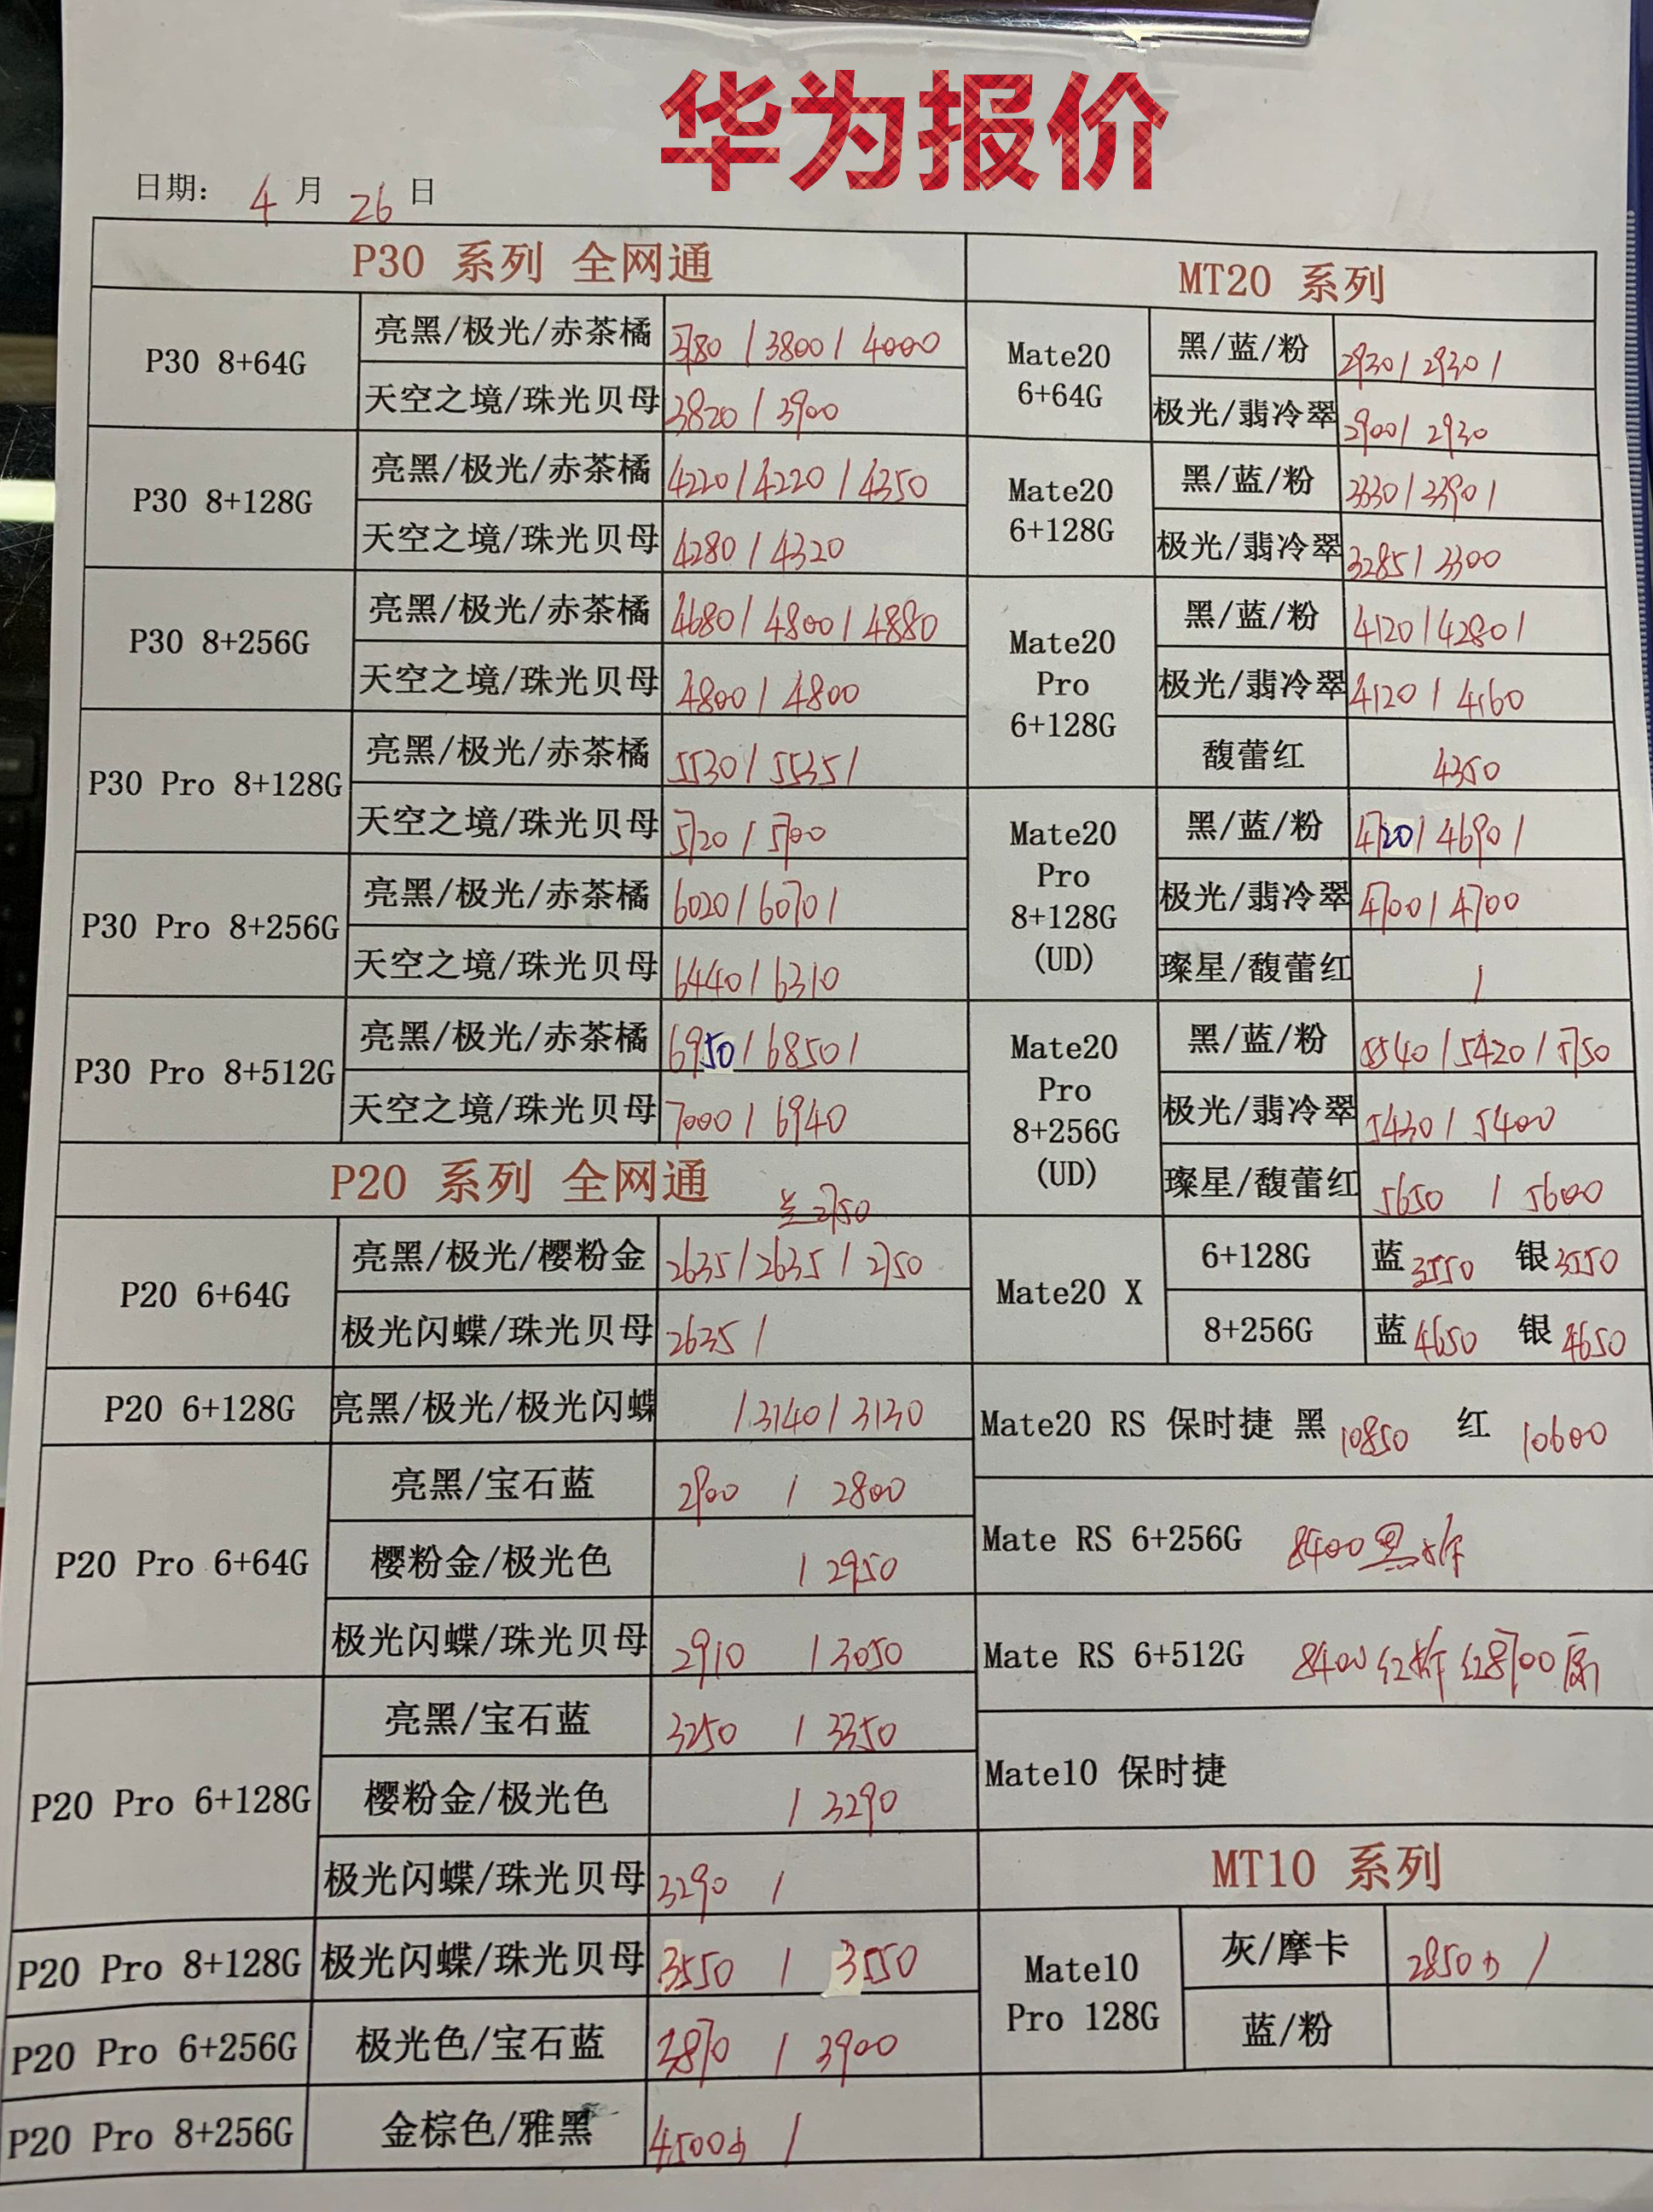 华为报价
日期： 4 月 26 日
P30 系列 全网通
P30 8+64G
亮黑/极光/赤茶橘 3780 / 3800 / 4000
天空之境/珠光贝母 3820 / 3900
P30 8+128G
亮黑/极光/赤茶橘 4220 / 4220 / 4350
天空之境/珠光贝母 4280 / 4320
P30 8+256G
亮黑/极光/赤茶橘 4680 / 4800 / 4880
天空之境/珠光贝母 4800 / 4800
P30 Pro 8+128G
亮黑/极光/赤茶橘 5530 / 5535 /
天空之境/珠光贝母 5720 / 5700
P30 Pro 8+256G
亮黑/极光/赤茶橘 6020 / 6070 /
天空之境/珠光贝母 6440 / 6310
P30 Pro 8+512G
亮黑/极光/赤茶橘 6950 / 6850 /
天空之境/珠光贝母 7000 / 6940
P20 系列 全网通
2750
P20 6+64G
亮黑/极光/樱粉金 2635 / 2635 / 2750
极光闪蝶/珠光贝母 2635 /
P20 6+128G
亮黑/极光/极光闪蝶 / 3140 / 3130
P20 Pro 6+64G
亮黑/宝石蓝 2900 / 2800
樱粉金/极光色 / 2950
极光闪蝶/珠光贝母 2910 / 3050
P20 Pro 6+128G
亮黑/宝石蓝 3250 / 3350
樱粉金/极光色 / 3290
极光闪蝶/珠光贝母 3290 /
P20 Pro 8+128G
极光闪蝶/珠光贝母 3550 / 3550
P20 Pro 6+256G
极光色/宝石蓝 3870 / 3900
P20 Pro 8+256G
金棕色/雅黑 4500 /
MT20 系列
Mate20
6+64G
黑/蓝/粉 2930 / 2930 /
极光/翡冷翠 2900 / 2930
Mate20
6+128G
黑/蓝/粉 3330 / 3390 /
极光/翡冷翠 3285 / 3300
Mate20
Pro
6+128G
黑/蓝/粉 4120 / 4280 /
极光/翡冷翠 4120 / 4160
馥蕾红 4350
Mate20
Pro
8+128G
(UD)
黑/蓝/粉 4720 / 4690 /
极光/翡冷翠 4700 / 4700
璨星/馥蕾红 /
Mate20
Pro
8+256G
(UD)
黑/蓝/粉 5540 / 5420 / 5750
极光/翡冷翠 5430 / 5400
璨星/馥蕾红 5650 / 5600
Mate20 X
6+128G 蓝 3550 银 3550
8+256G 蓝 4650 银 4650
Mate20 RS 保时捷 黑 10850 红 10600
Mate RS 6+256G 8400 黑
Mate RS 6+512G 8400 红拆 红8700 原
Mate10 保时捷
MT10 系列
Mate10
Pro 128G
灰/摩卡 2850 /
蓝/粉